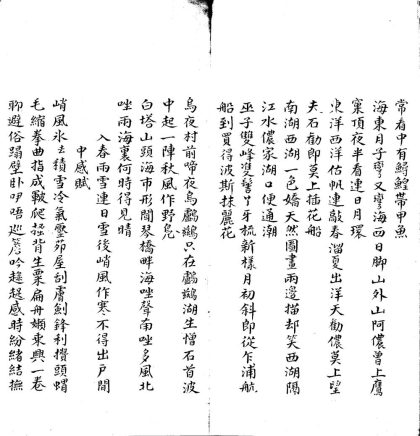 常看中有鱘鰉帶甲魚
海東月子彎又彎海西日脚山外山阿儂曾上鷹
窠頂夜半看連日月環
東洋西洋估帆連敲春溜夏出洋天勸儂莫上望
夫石勸郎莫上插花船
南湖西湖一色嬌天然圖畫兩邊描却笑西湖隔
江水儂家湖口便通潮
巫子雙峰雙髻丫牙梳新樣月初斜郎從乍浦航
船到買得波斯抹麗花
烏夜村前啼夜烏鸕鷀只在鸕鷀湖生憎石首波
中起一陣秋風作野鳧
白塔山頭海市形閘琴橋畔海唑聲南唑多風北
唑雨海裏何時得見晴
入春雨雪連日雪後峭風作寒不得出戶間
中感賦
峭風氷去積雪冷氣霾茆屋刮膚劍鋒利擔頭蝟
毛縮拳曲指成皸爬搔背生粟扁舟嬾東興一卷
聊避俗蹋壁卧吚唔巡簷吟趑趄感時紛緒結撫